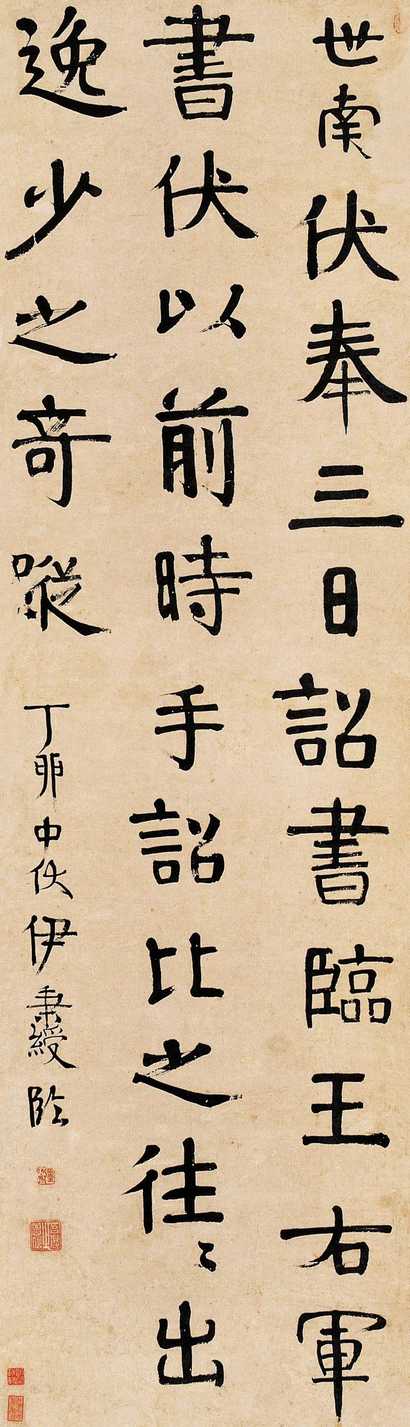 世南伏奉三日詔書臨王右軍
書伏以前時手詔比之往〻出
逸少之奇蹤 丁卯中伏伊秉綬臨